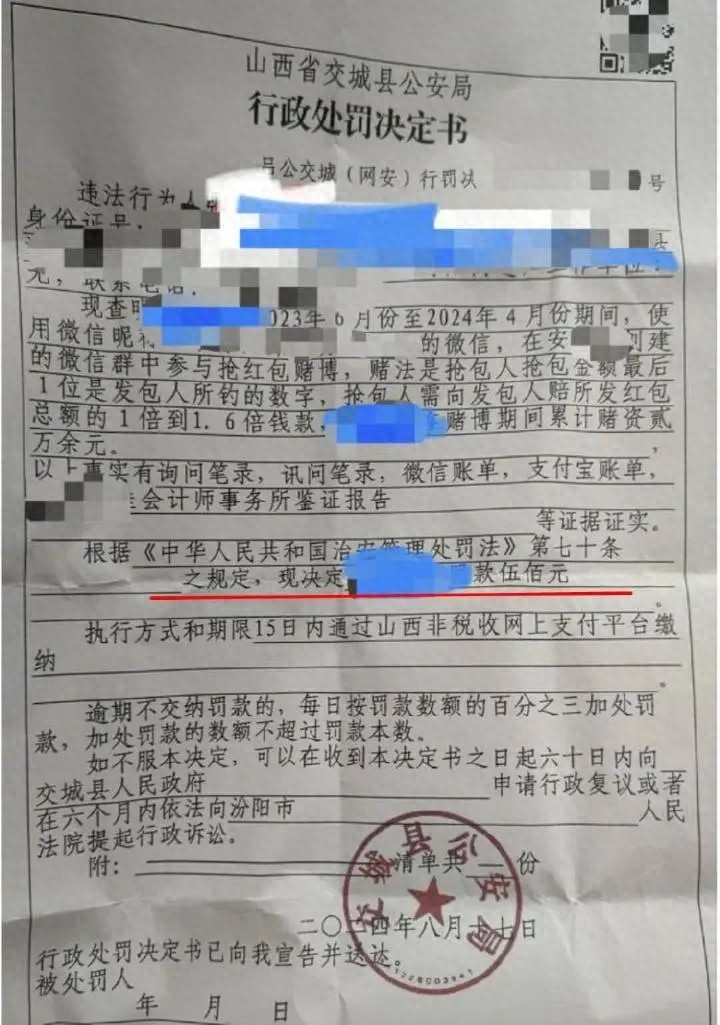 山西省交城县公安局
行政处罚决定书
公交城（网安）行罚决 号
违法行为人
身份证号：
元，联系电话
现查明 2023年6月份至2024年4月份期间，使
用微信昵称 的微信，在安 创建
的微信群中参与抢红包赌博，赌法是抢包人抢包金额最后
1位是发包人所钓的数字，抢包人需向发包人赔所发红包
总额的1倍到1.6倍钱款， 在赌博期间累计赌资贰
万余元。，
以上事实有询问笔录，讯问笔录，微信账单，支付宝账单，
会计师事务所鉴证报告
等证据证实。
根据《中华人民共和国治安管理处罚法》第七十条
之规定，现决定 款伍佰元
。
执行方式和期限15日内通过山西非税收网上支付平台缴
纳 。
逾期不交纳罚款的，每日按罚款数额的百分之三加处罚
款，加处罚款的数额不超过罚款本数。
如不服本决定，可以在收到本决定书之日起六十日内向
交城县人民政府 申请行政复议或者
在六个月内依法向汾阳市 人民
法院提起行政诉讼。
附： 清单共 份
交城县公安局
二〇二四年八月 七日
行政处罚决定书已向我宣告并送达。
被处罚人
年 月 日